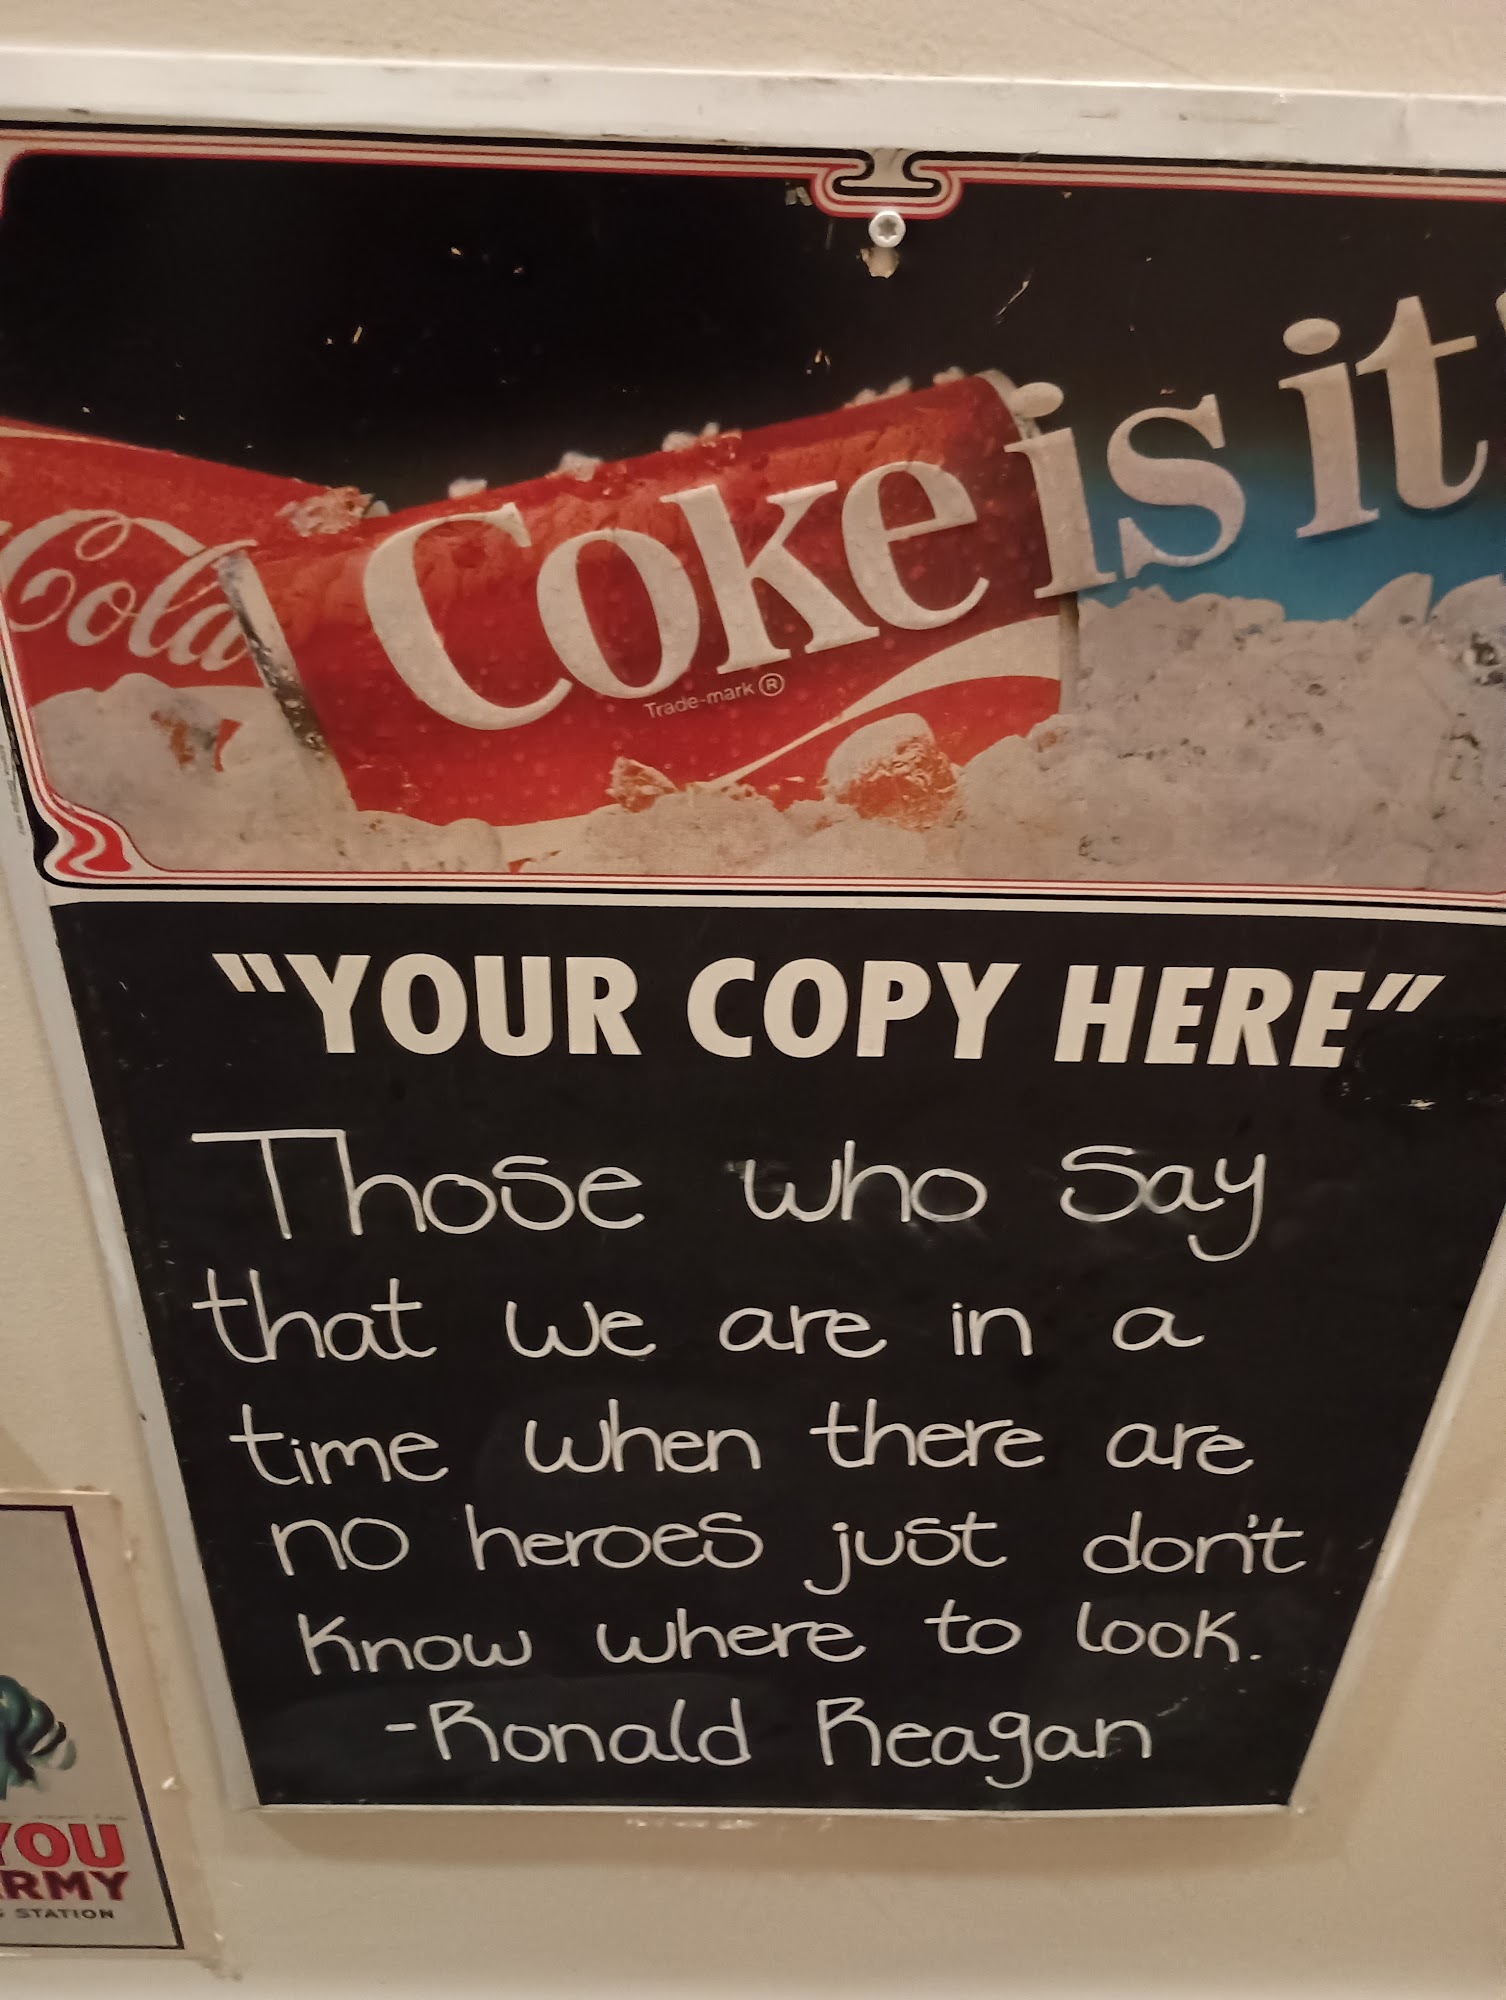 Cola
Coke is it!
Trade-mark ®
"YOUR COPY HERE"
Those who say
that we are in a
time when there are
no heroes just don't
know where to look.
-Ronald Reagan
YOU
RMY
STATION